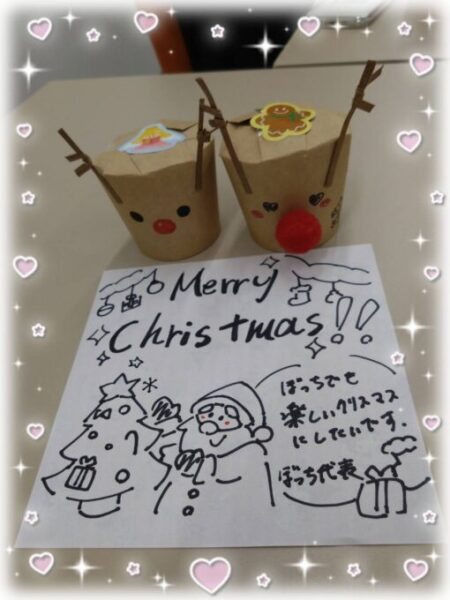 Merry
Christmas!!
ぼっちでも
楽しいクリスマス
にしたいです.
ぼっち代表